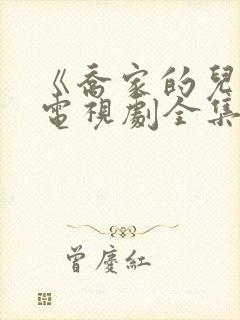 《喬家的兒
電視劇全集
曾慶紅